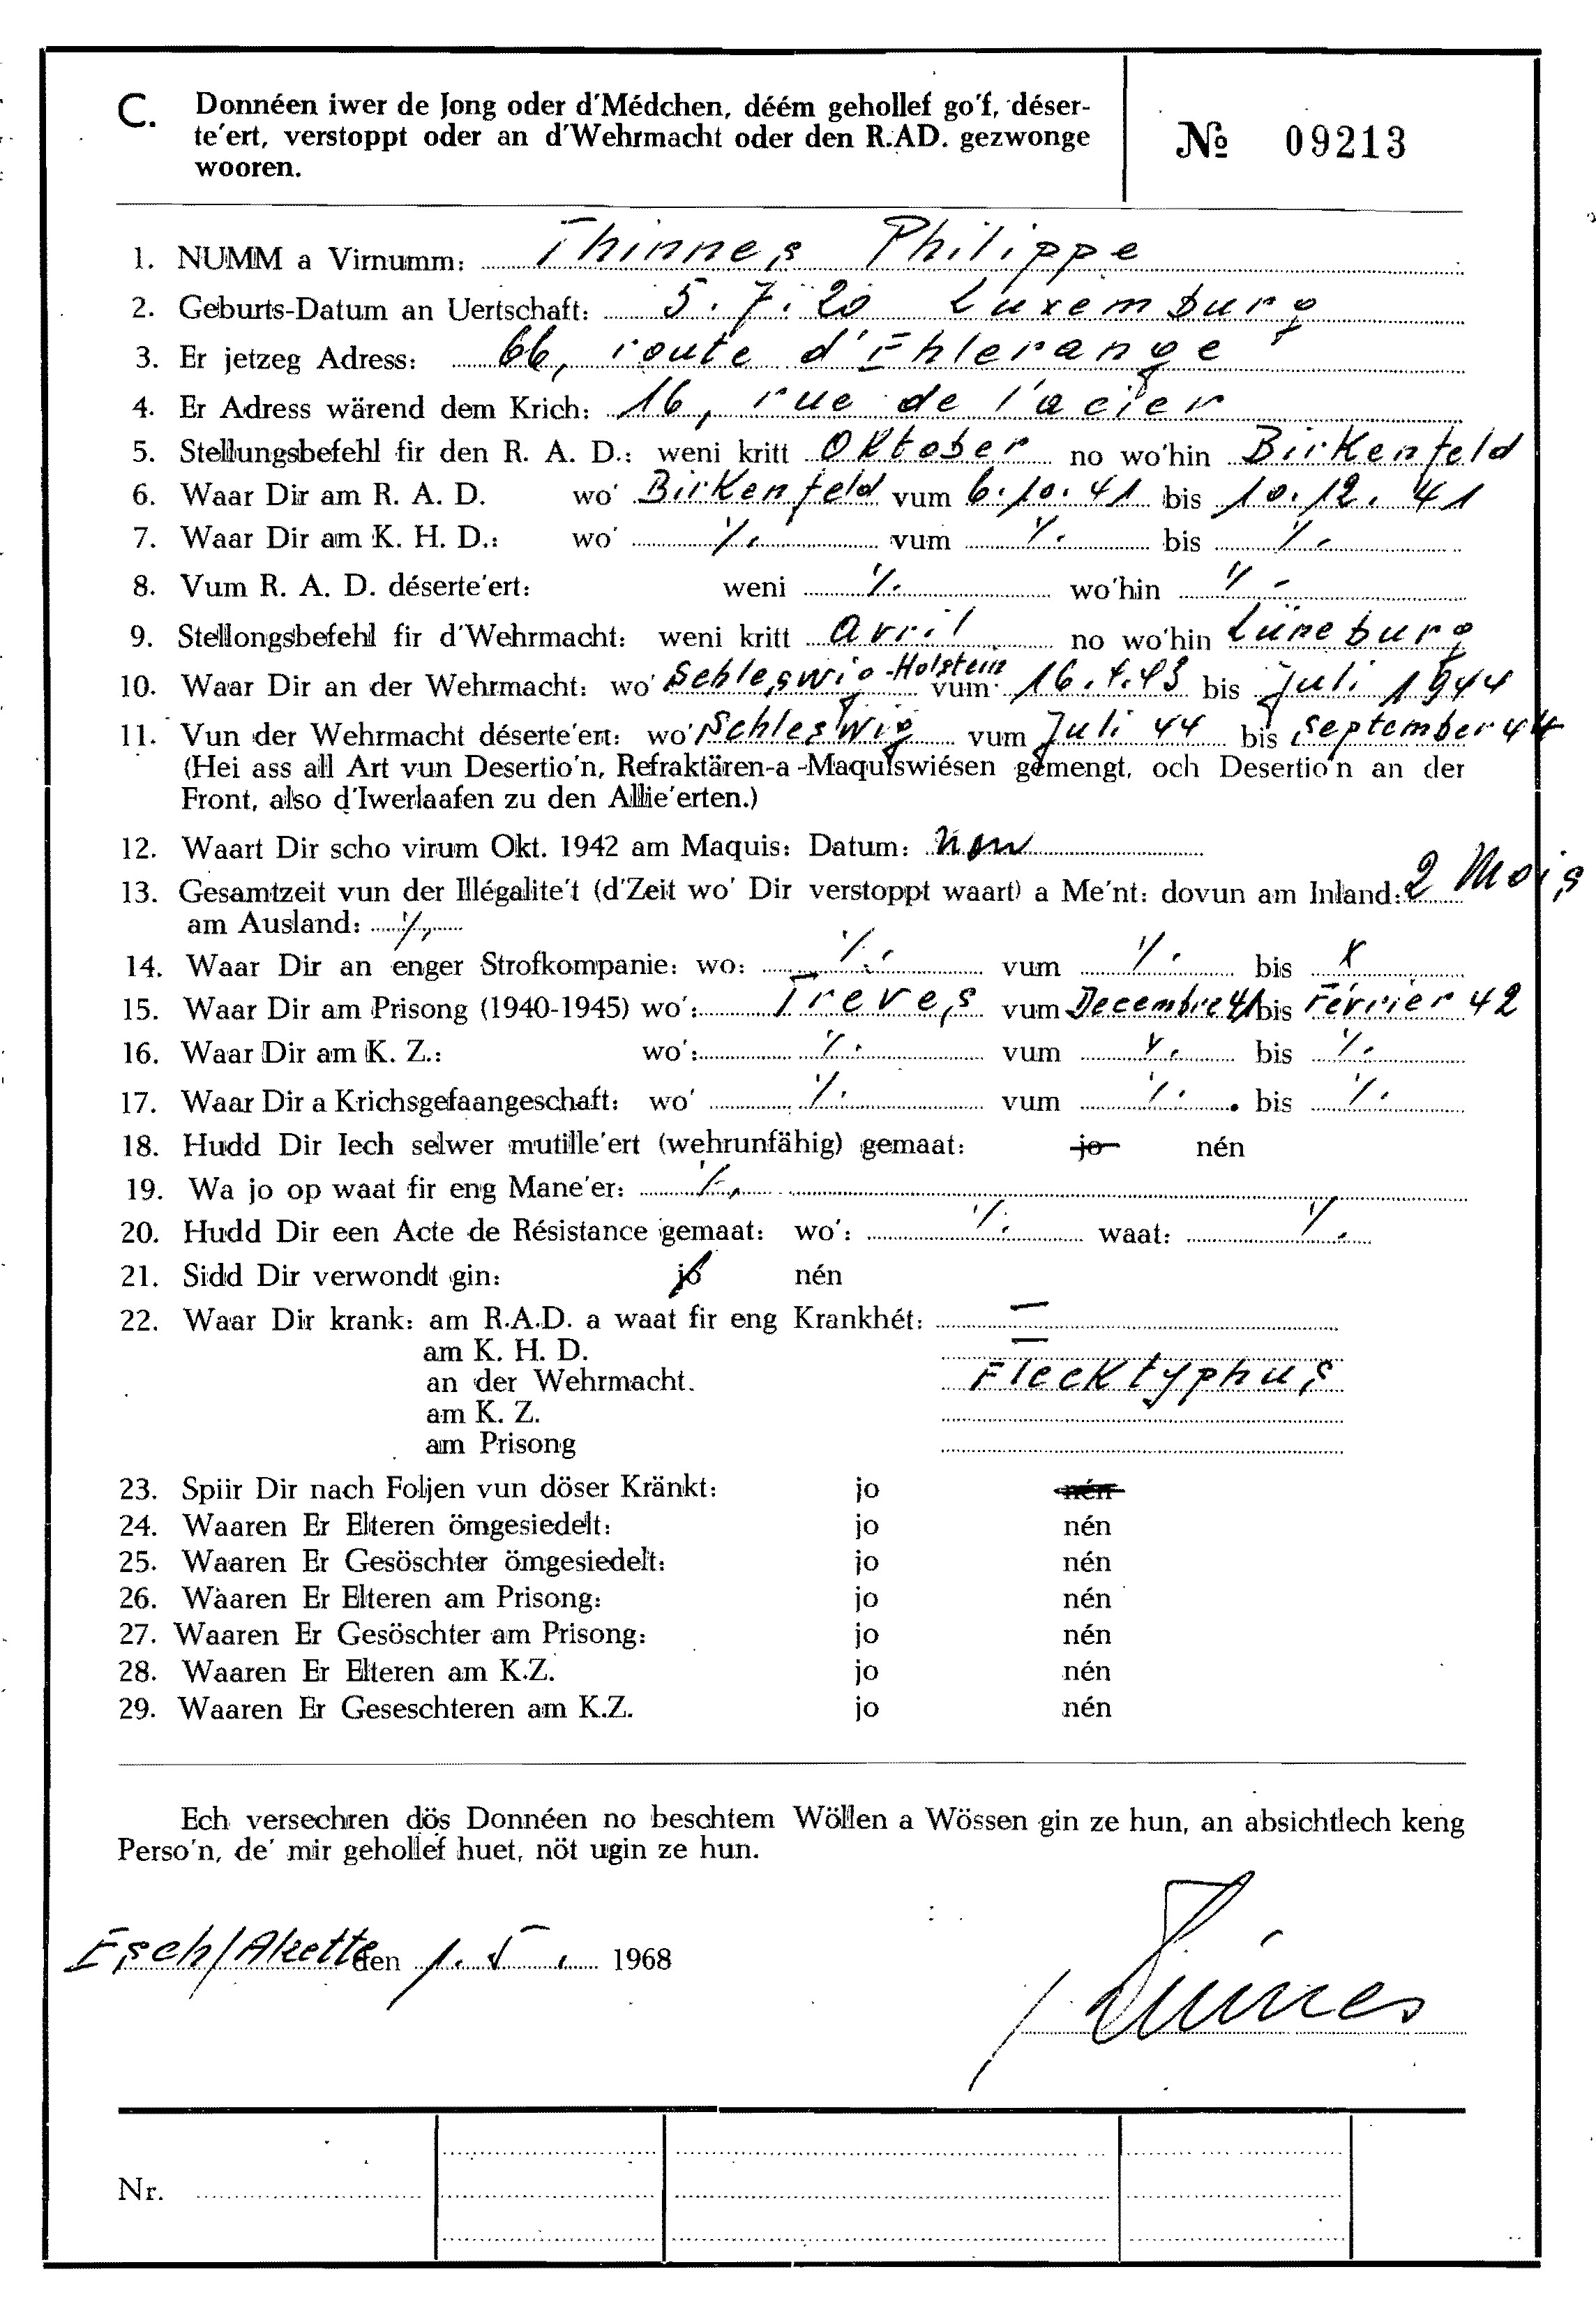 C. Donnéen iwer de Jong oder d'Médchen, déém gehollef go'f, déser-
te'ert, verstoppt oder an d'Wehrmacht oder den R.AD. gezwonge
wooren.
№ 09213
1. NUMM a Virnumm: Thinnes Philippe
2. Geburts-Datum an Uertschaft: 5.7.20 Luxemburg
3. Er jetzeg Adress: 66, route d'Ehlerange
4. Er Adress wärend dem Krich: 16, rue de l'acier
5. Stellungsbefehl fir den R. A. D.: weni kritt Oktober no wo'hin Birkenfeld
6. Waar Dir am R. A. D. wo' Birkenfeld vum 6.10.41 bis 10.12.41
7. Waar Dir am K. H. D.: wo' /. vum /. bis /.
8. Vum R. A. D. déserte'ert: weni /. wo'hin /.
9. Stellongsbefehl fir d'Wehrmacht: weni kritt avril no wo'hin Lüneburg
10. Waar Dir an der Wehrmacht: wo' Schleswig-Holstein vum 16.4.43 bis Juli 1944
11. Vun der Wehrmacht déserte'ert: wo' Schleswig vum Juli 44 bis September 44
(Hei ass all Art vun Desertio'n, Refraktären-a-Maquiswiésen gemengt, och Desertio'n an der
Front, also d'Iwerlaafen zu den Allie'erten.)
12. Waart Dir scho virum Okt. 1942 am Maquis: Datum: non
13. Gesamtzeit vun der Illégalite't (d'Zeit wo' Dir verstoppt waart) a Me'nt: dovun am Inland: 2 Mois
am Ausland: /.
14. Waar Dir an enger Strofkompanie: wo: /. vum /. bis /
15. Waar Dir am Prisong (1940-1945) wo': Treves vum Decembre 41 bis Février 42
16. Waar Dir am K. Z.: wo': /. vum /. bis /.
17. Waar Dir a Krichsgefaangeschaft: wo' /. vum /. bis /.
18. Hudd Dir Iech selwer mutille'ert (wehrunfähig) gemaat: jo nén
19. Wa jo op waat fir eng Mane'er: /.
20. Hudd Dir een Acte de Résistance gemaat: wo': /. waat: /.
21. Sidd Dir verwondt gin: jo nén
22. Waar Dir krank: am R.A.D. a waat fir eng Krankhét: —
am K. H. D. —
an der Wehrmacht. Flecktyphus
am K. Z.
am Prisong
23. Spiir Dir nach Foljen vun döser Kränkt: jo nén
24. Waaren Er Elteren ömgesiedelt: jo nén
25. Waaren Er Gesöschter ömgesiedelt: jo nén
26. Waaren Er Elteren am Prisong: jo nén
27. Waaren Er Gesöschter am Prisong: jo nén
28. Waaren Er Elteren am K.Z. jo nén
29. Waaren Er Geseschteren am K.Z. jo nén
Ech versechren dös Donnéen no beschtem Wöllen a Wössen gin ze hun, an absichtlech keng
Perso'n, de' mir gehollef huet, nöt ugin ze hun.
Esch/Alzette den 1.5. 1968
Thinnes
Nr.